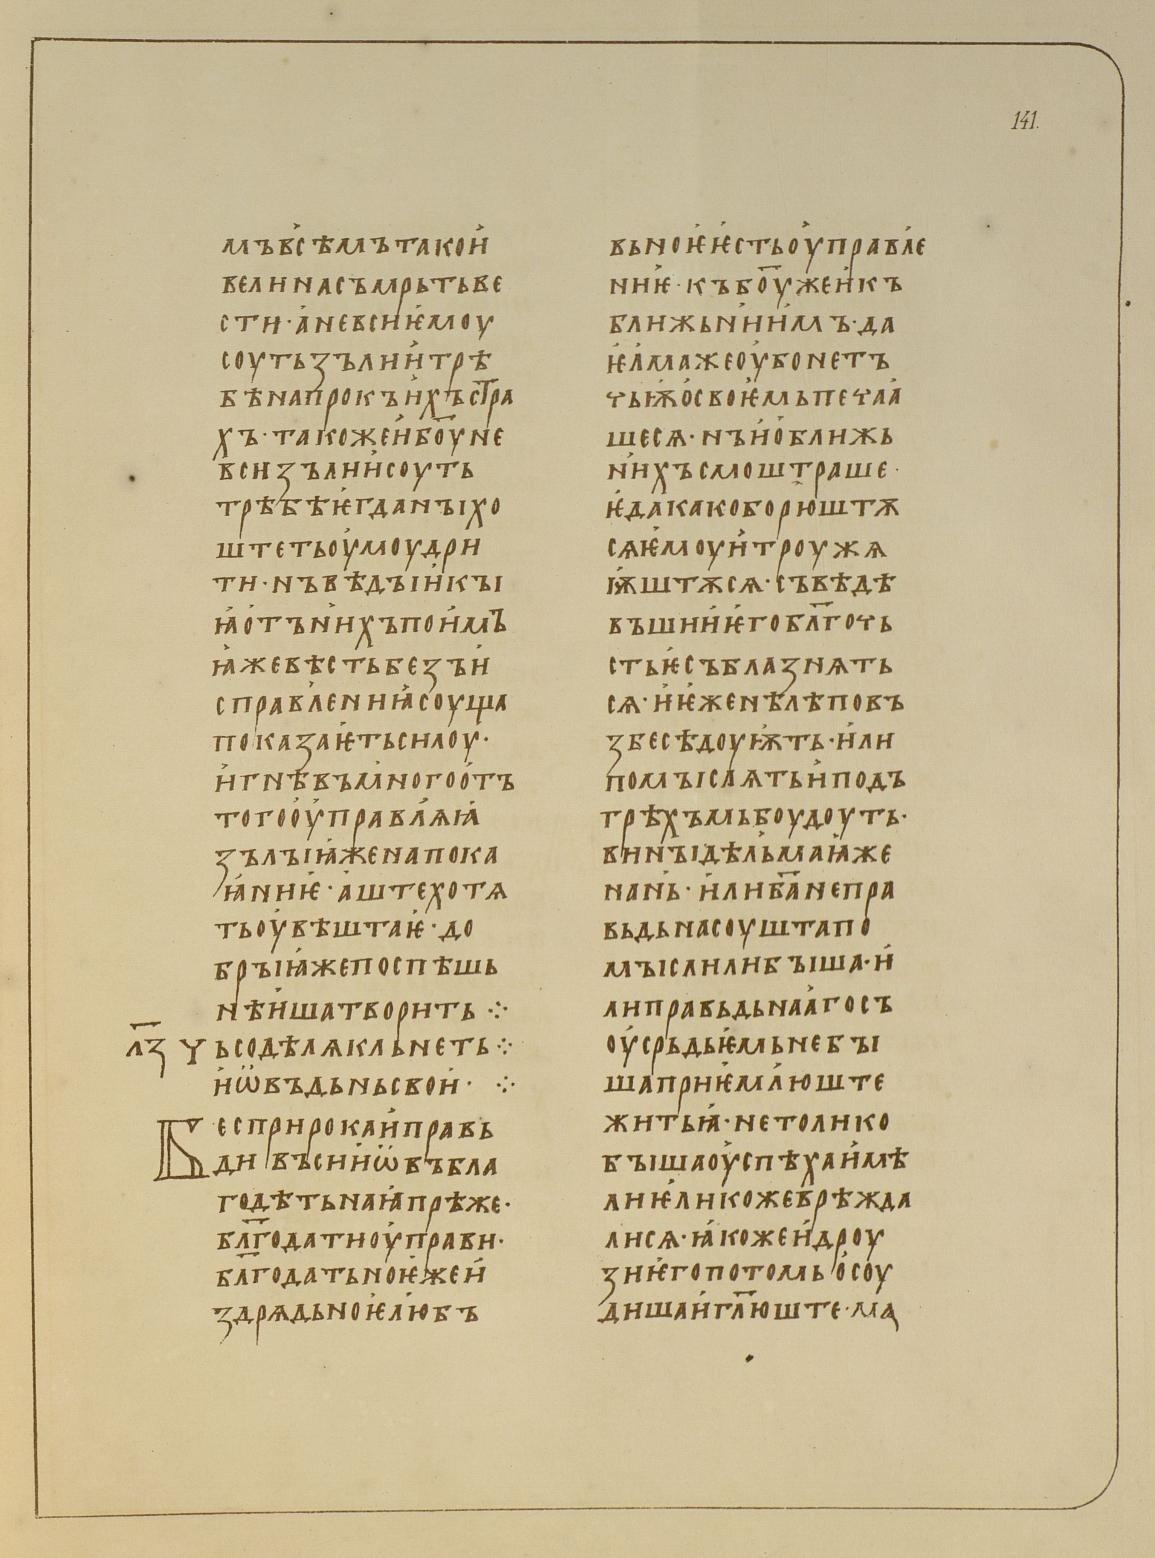 141.
мъвсѣмътакои
велинасъмрьтьве
сти·аневсиѥмоу
соутьзълиитрѣ
бѣнапрокъихъстра
хъ·такожеибоуне
всизълиисоуть
трѣбѣѥгданꙑхо
штетьоумоудри
ти·нъвѣдꙑикꙑ
ꙗотънихъпоимъ
ꙗжевѣстьбезъи
справлениꙗсоуща
показаѥтьсилоу·
игнѣвъмногоотъ
тогооуправлѧꙗ
зълꙑꙗженапока
ꙗниѥ·аштехотѧ
тьоувѣштаѥ·до
брꙑꙗжепоспѣшь
нѣишатворить ⁘
лз чьсодѣлѧкльнеть⁘
иѡвъдьньсвои· ⁘
Беспрirокаиправь
ди въсииѡвъбла
годѣтьнаꙗпрѣже·
блгодатноуправи·
благодатьноѥжеи
здрѧдьноѥлюбъ
вьноѥѥстьоуправле
ниѥ·къбоужеикъ
ближьниимъ·да
ѥлмажеоубонетъ
чьѭосвоѥмьпечаа
шесѧ·нъиоближь
нихъсмоштраше·
ѥдакакоборюштѫ
сѧѥмоуитроужѧ
ѭштѫсѧ·съвѣдѣ
въшииѥгоблгочь
стьѥсъблазнѧть
сѧ·иѥженѣлѣповъ
збесѣдоуѭть·или
помꙑслѧтьиподъ
грѣхъмьбоудоуть·
винꙑдѣльмаꙗже
нань·илибанепра
вьдьнасоуштапо
мꙑслилибꙑша·и
липравьдьнаагосъ
оусрьдьѥмьнебꙑ
шаприѥмлюште
житьꙗ·нетолико
бꙑшаоуспѣхаимѣ
лиѥликожеврѣжда
лисѧ·ꙗкожеидроу
зиѥгопотомьосоу
дишаиглюште·ма